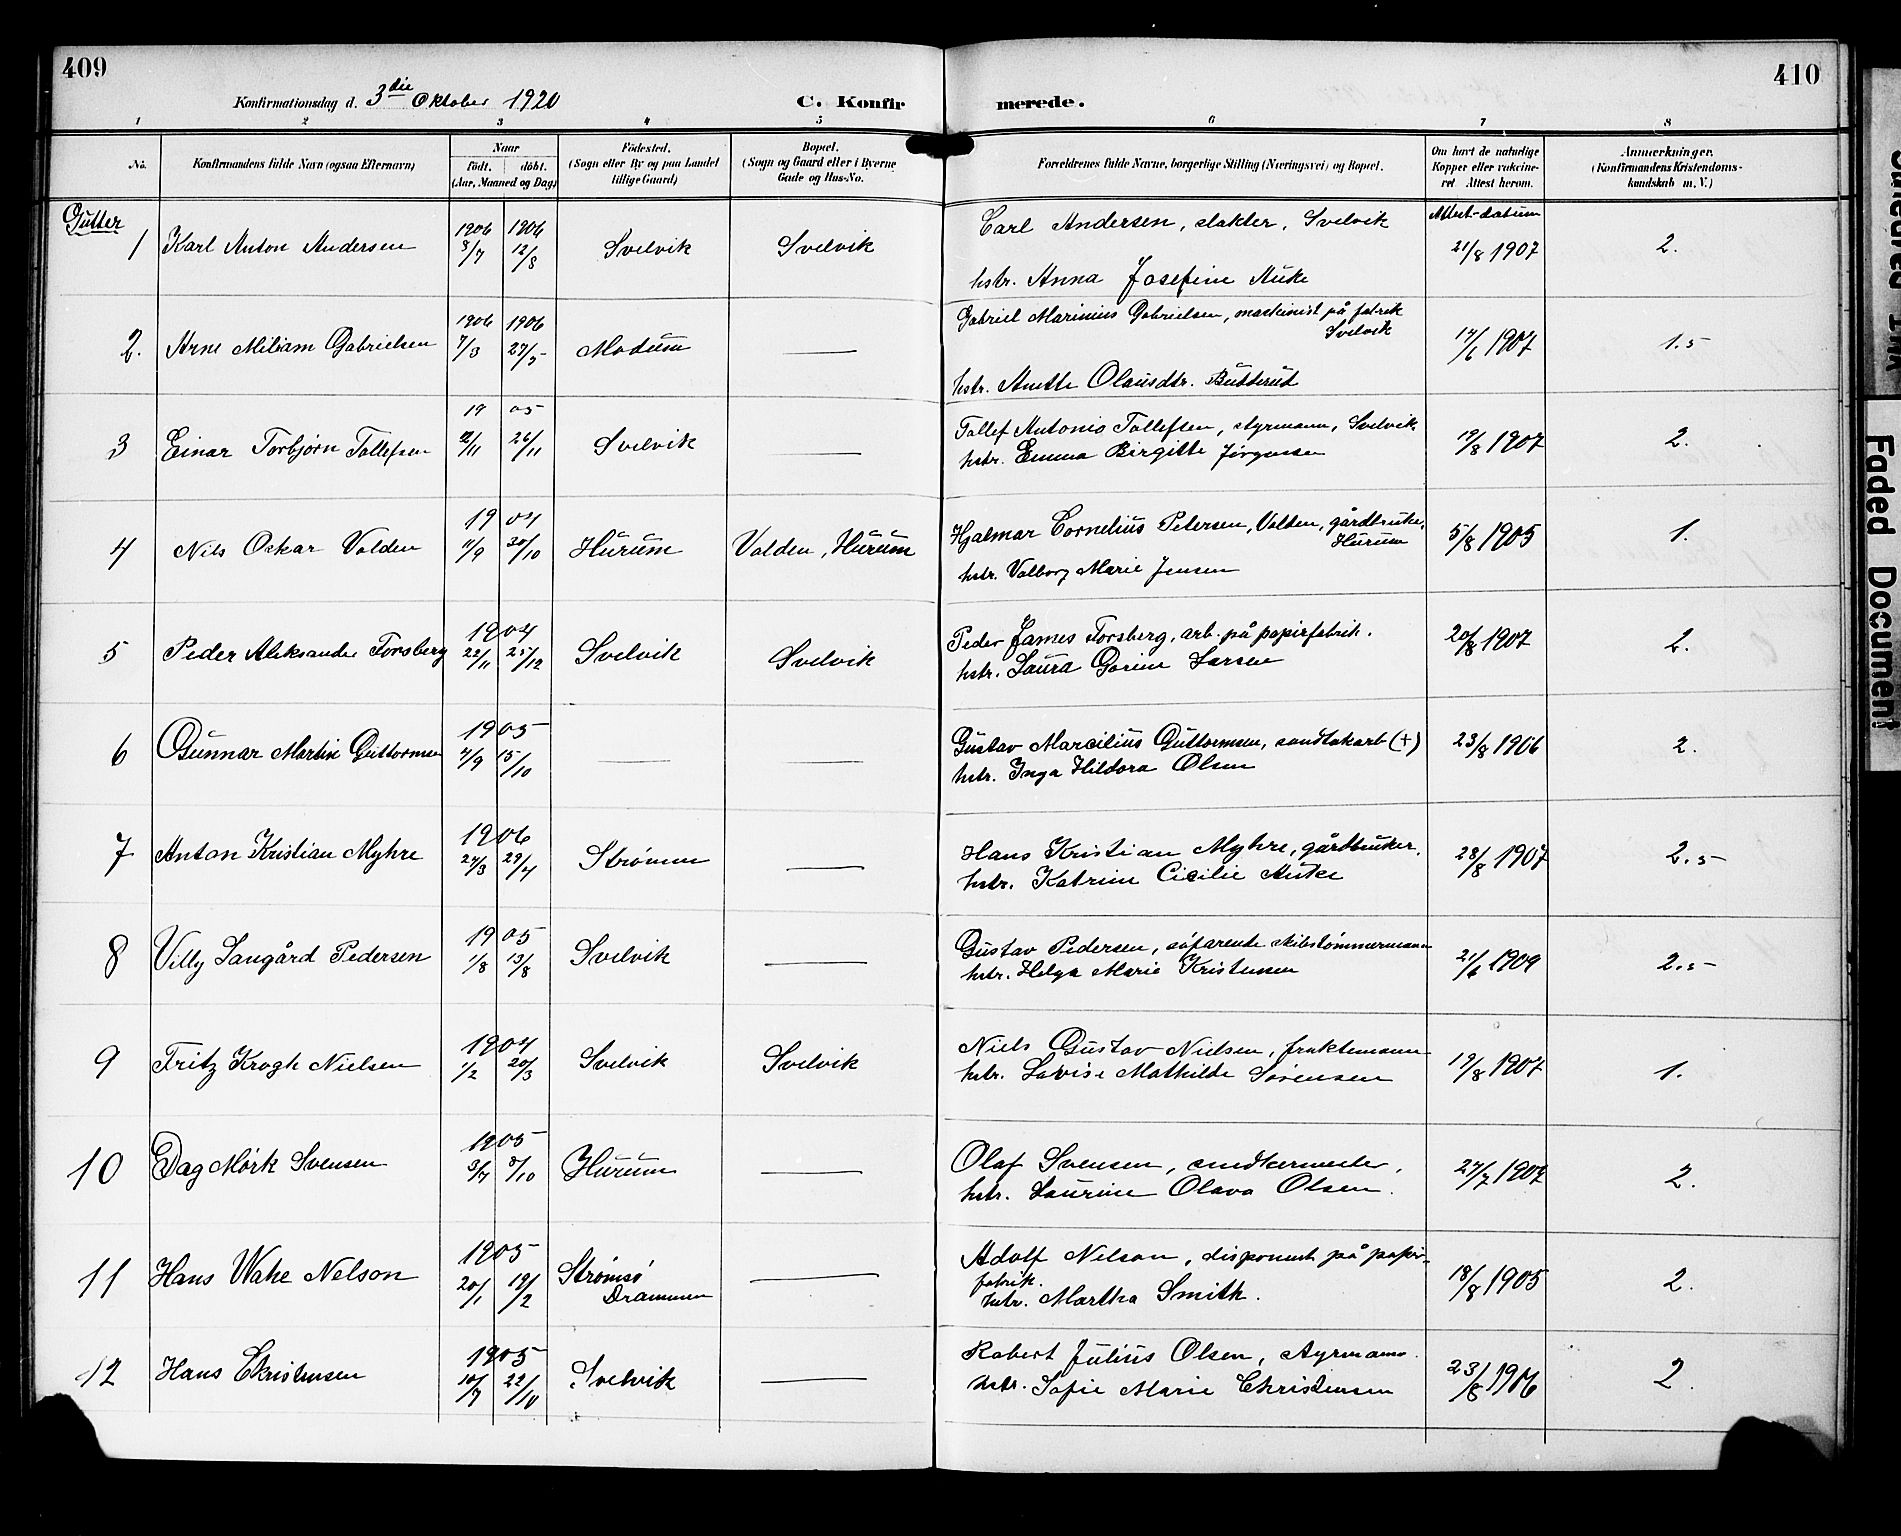 409
410
Konfirmationsdag d. 3die Oktober 1920
C. Konfir merede.
1 2 3 4 5 6 7 8
No.
Konfirmandens fulde Navn (ogsaa Efternavn)
Naar
født. døbt.
(Aar, Maaned og Dag)
Fødested.
(Sogn eller By og paa Landet
tillige Gaard)
Bopæl.
(Sogn og Gaard eller i Byerne
Gade og Hus-No.
Forældrenes fulde Navne, borgerlige Stilling (Næringsvei) og Bopæl.
Om havt de naturlige
Kopper eller vakcine-
ret. Attest herom.
Anmærkninger.
(Konfirmandens Kristendoms-
kundskab m. V.)
Gutter
Attest-datum
1 Karl Anton Andersen 1906 8/7 1906 12/8 Svelvik Svelvik Carl Andersen, slakter, Svelvik
hstr. Anna Josefine Auke 21/8 1907 2.
2. Arne Miliam Gabrielsen 1906 7/3 1906 27/5 Modum — Gabriel Marinius Gabrielsen, maskinist på fabrik
Svelvik
hstr. Anette Olausdtr. Butterud 17/6 1907 1.5
3 Einar Torbjørn Tollefsen 1905 12/11 26/11 Svelvik — Tollef Antonio Tollefsen, styrmann, Svelvik
hstr. Emma Birgitte Jørgensen 19/8 1907 2.
4 Nils Oskar Volden 1904 11/9 30/10 Hurum Volden, Hurum Hjalmar Cornelius Petersen, Volden, gårdbruker,
Hurum
hstr. Valborg Marie Jensen 5/8 1905 1.
5 Peder Aleksander Forsberg 1904 22/11 25/12 Svelvik Svelvik Peder James Forsberg, arb. på papirfabrik.
hstr. Laura Gorine Larsen 20/8 1907 2.
6 Gunnar Martin Guttormsen 1905 4/9 15/10 — — Gustav Marcilius Guttormsen, sandtakarb (+)
hstr. Inga Hildora Olsen 23/8 1906 2.
7 Anton Kristian Myhre 1906 24/3 29/4 Strømm — Hans Kristian Myhre, gårdbruker.
hstr. Katrine Cicilie Auke 28/8 1907 2.5
8 Villy Sangård Pedersen 1905 1/8 13/8 Svelvik — Gustav Pedersen, søfarende skibstømmermann
hstr. Helga Marie Kristensen 21/6 1909 2.5
9 Fritz Krogh Nielsen 1904 1/2 20/3 Svelvik Svelvik Niels Gustav Nielsen, fraktemann
hstr. Lovise Mathilde Sørensen 19/8 1907 1.
10 Dag Mørk Svensen 1905 3/7 8/10 Hurum — Olaf Svensen, snekkermester,
hstr. Laurine Olava Olsen. 27/7 1907 2.
11 Hans Wake Nelson 1905 20/1 19/2 Strømsø
Drammen — Adolf Nelson, disponent på papir-
fabrik.
hstr. Martha Smith. 18/8 1905 2.
12 Hans Christensen 1905 10/7 22/10 Svelvik — Robert Julius Olsen, styrmann.
hstr. Sofie Marie Christensen 23/8 1906 2.
Faded Document